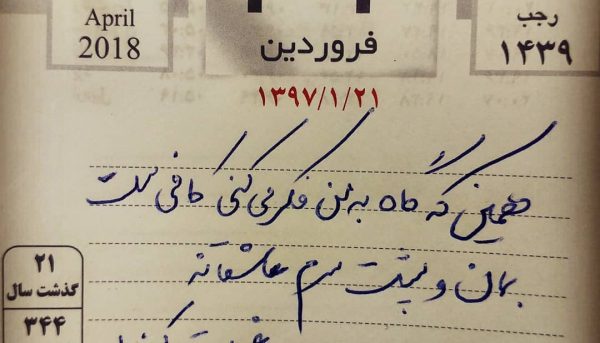 April
2018
فروردین
رجب
۱۴۳۹
۱۳۹۷/۱/۲۱
همین که گاه به من فکر می‌کنی کافی ست
بمان و پشت سرم عاشقانه
۲۱
گذشت سال
۳۴۴